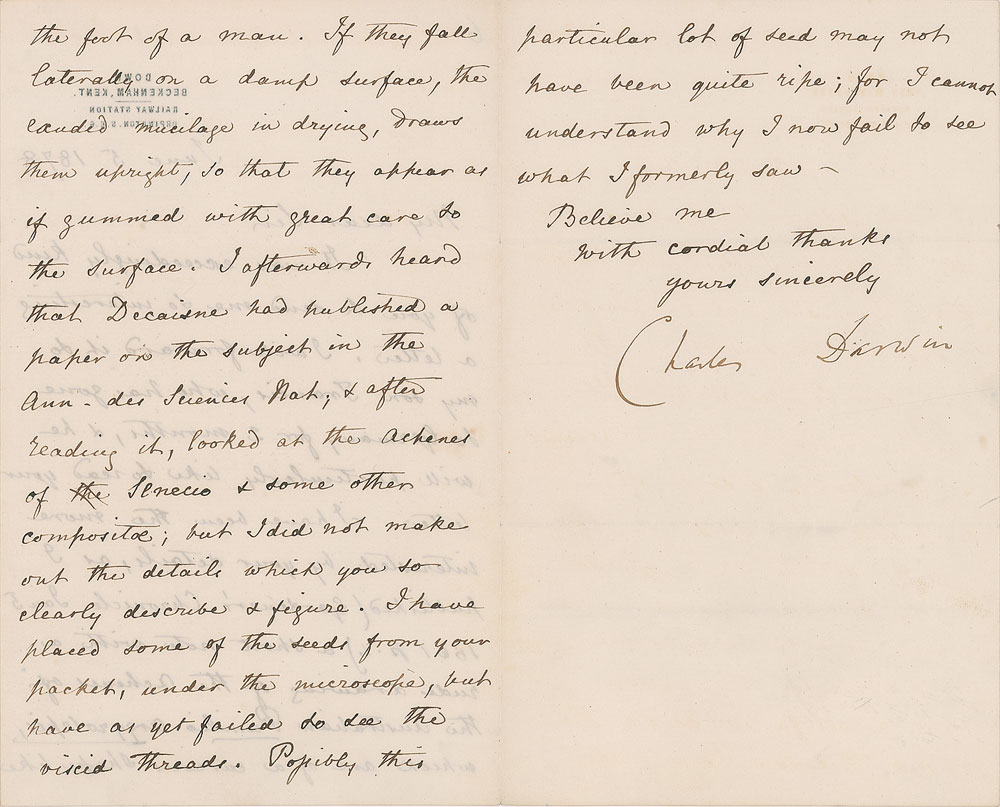 the foot of a man. If they fall
laterally on a damp surface, the
exuded mucilage in drying, draws
them upright, so that they appear as
if gummed with great care to
the surface. I afterwards heard
that Decaisne had published a
paper on the subject in the
Ann - des Sciences Nat; & after
reading it, looked at the Achenes
of the Senecio & some other
compositæ; but I did not make
out the details which you so
clearly describe & figure. I have
placed some of the seeds from your
packet, under the microscope, but
have as yet failed to see the
viscid threads. Possibly this
particular lot of seed may not
have been quite ripe; for I cannot
understand why I now fail to see
what I formerly saw —
Believe me
with cordial thanks
yours sincerely
Charles Darwin
DOWN,
BECKENHAM, KENT.
RAILWAY STATION
ORPINGTON. S.E.R.